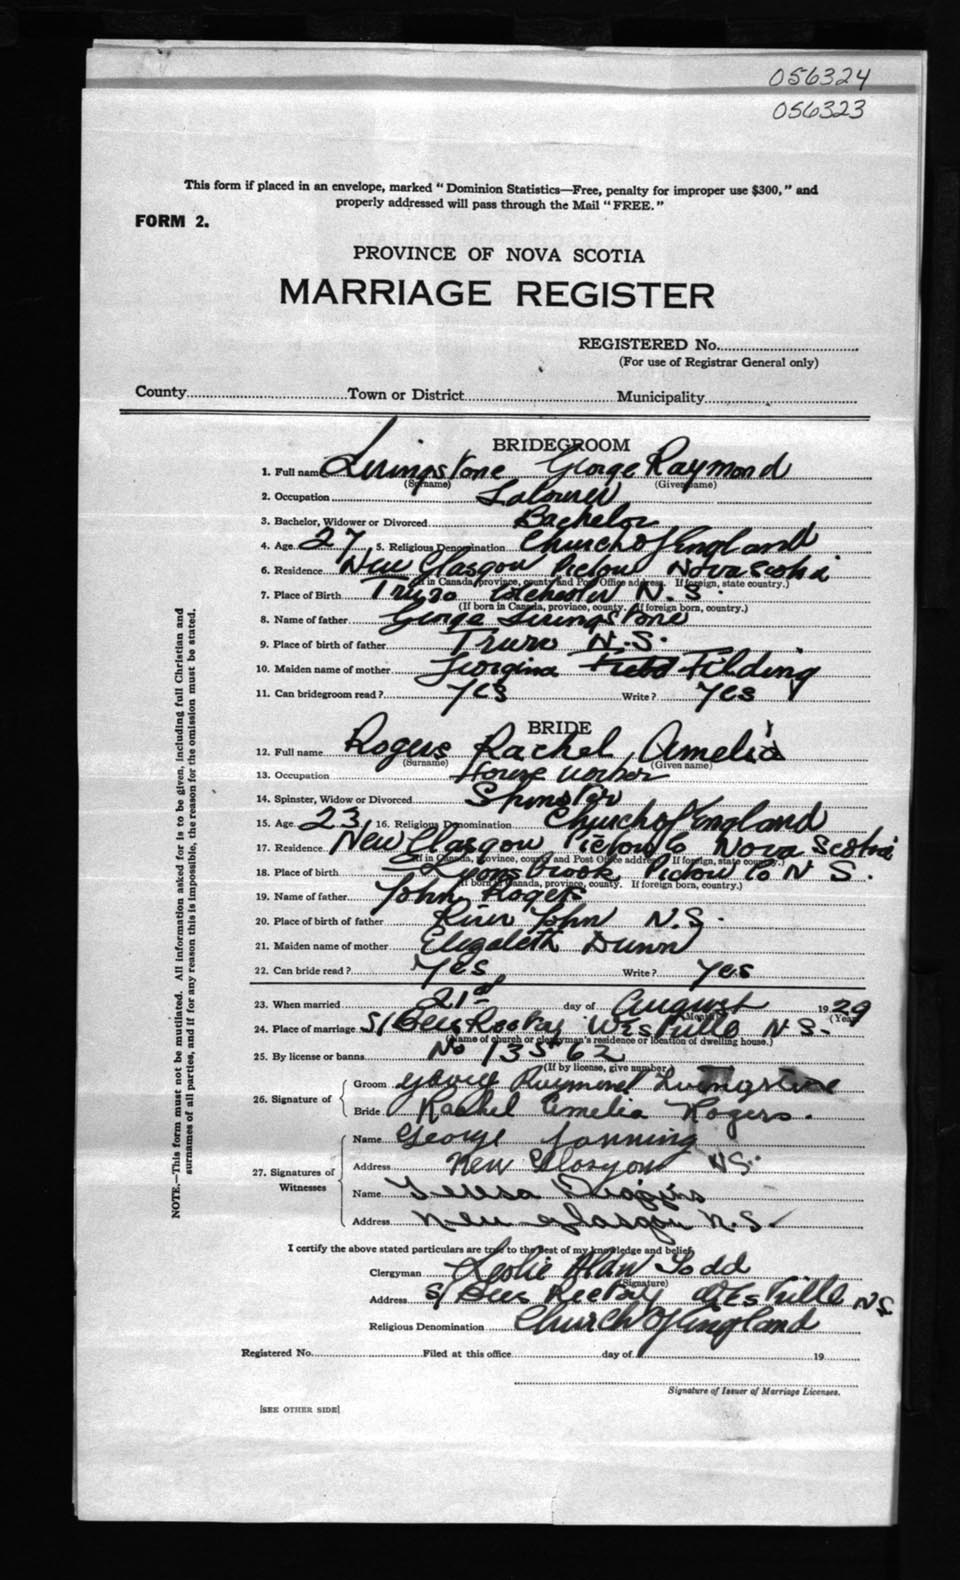 056324
056323
This form if placed in an envelope, marked "Dominion Statistics—Free, penalty for improper use $300," and
properly addressed will pass through the Mail "FREE."
FORM 2.
PROVINCE OF NOVA SCOTIA
MARRIAGE REGISTER
REGISTERED No.
(For use of Registrar General only)
County Town or District Municipality
BRIDEGROOM
1. Full name Livingstone George Raymond
(Surname) (Given name)
2. Occupation Labourer
3. Bachelor, Widower or Divorced Bachelor
4. Age 27 5. Religious Denomination Church of England
6. Residence New Glasgow Pictou Nova Scotia
(If in Canada, province, county and Post Office address. If foreign, state country.)
7. Place of Birth Truro Colchester N.S.
(If born in Canada, province, county. If foreign born, country.)
8. Name of father George Livingstone
9. Place of birth of father Truro N.S.
10. Maiden name of mother Georgina Filding
11. Can bridegroom read? Yes Write? Yes
BRIDE
12. Full name Rogers Rachel Amelia
(Surname) (Given name)
13. Occupation House worker
14. Spinster, Widow or Divorced Spinster
15. Age 23 16. Religious Denomination Church of England
17. Residence New Glasgow Pictou Co Nova Scotia
(If in Canada, province, county and Post Office address. If foreign, state country.)
18. Place of birth Lyons Brook Pictou Co N S.
(If born in Canada, province, county. If foreign born, country.)
19. Name of father John Rogers
20. Place of birth of father River John N.S.
21. Maiden name of mother Elizabeth Dunn
22. Can bride read? Yes Write? Yes
23. When married 21st day of August 1929
(Month) (Year)
24. Place of marriage S/Bees Rectory Westville N.S.
(Name of church or clergyman's residence or location of dwelling house.)
25. By license or banns No 13562
(If by license, give number.)
26. Signature of Groom George Raymond Livingstone
Bride Rachel Amelia Rogers.
27. Signatures of Witnesses Name George Fanning
Address New Glasgow N.S.
Name Teresa
Address New Glasgow N.S.
I certify the above stated particulars are true to the best of my knowledge and belief,
Clergyman Leslie Alan Todd
(Signature)
Address S/Bees Rectory Westville N.S.
Religious Denomination Church of England
Registered No. Filed at this office day of 19
Signature of Issuer of Marriage Licenses.
[SEE OTHER SIDE]
NOTE.—This form must not be mutilated. All information asked for is to be given, including full Christian and
surnames of all parties, and if for any reason this is impossible, the reason for the omission must be stated.